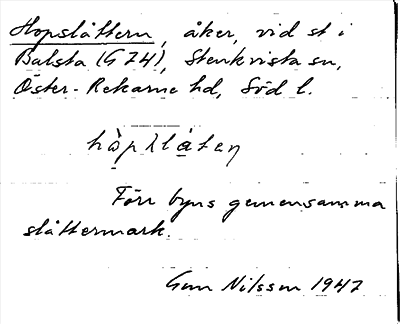 Hopslåttern, åker, vid st i
Balsta (G 74), Stenkvista sn,
Öster-Rekarne hd, Söd l.
Förr byns gemensamma
slåttermark.
Gun Nilsson 1947